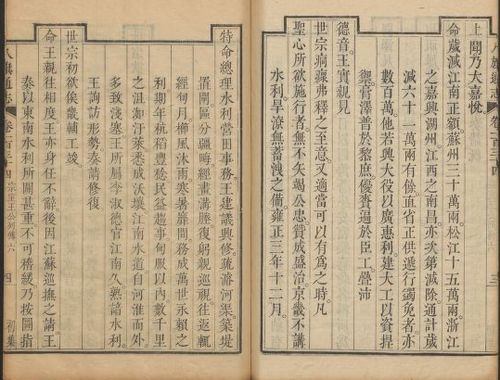 上聞乃大嘉悅
命歲減江南正額蘇州三十萬兩松江十五萬兩浙江
之嘉興湖州江西之南昌亦次第減除通計歲
減六十一萬兩有餘直省正供遞行蠲免者亦
數百萬他若興大役以廣惠利建大工以資捍
禦膏澤普於黎庶優賚逼於臣工疊沛
德音王實親見
世宗痌瘝弗釋之至意又適當可以有為之時凡
聖心所欲施行者無不矢竭公忠贊成盛治京畿不講
水利旱潦無蓄洩之備雍正三年十二月
特命總理水利營田事務王建議興修疏濬河渠築堤
置閘區分疆畮經畫溝塍復躬親巡視往返輒
經旬月櫛風沐雨寒暑靡間務成萬世永賴之
利期年秔稻豐稔民益趨事甸服以內數千里
之沮洳汙萊悉成沃壤江南水道自河淮而外
多致淺塞王所屬李淑德官江南久熟諳水利
王詢訪形勢奏請修復
世宗初欲俟畿輔工竣
命王親往相度王亦身任不辭後因江蘇巡撫之請王
奏以東南水利所關甚重不可稽緩乃按圖指
八旗通志 卷百三十四 宗室王公列傳六 四 初集